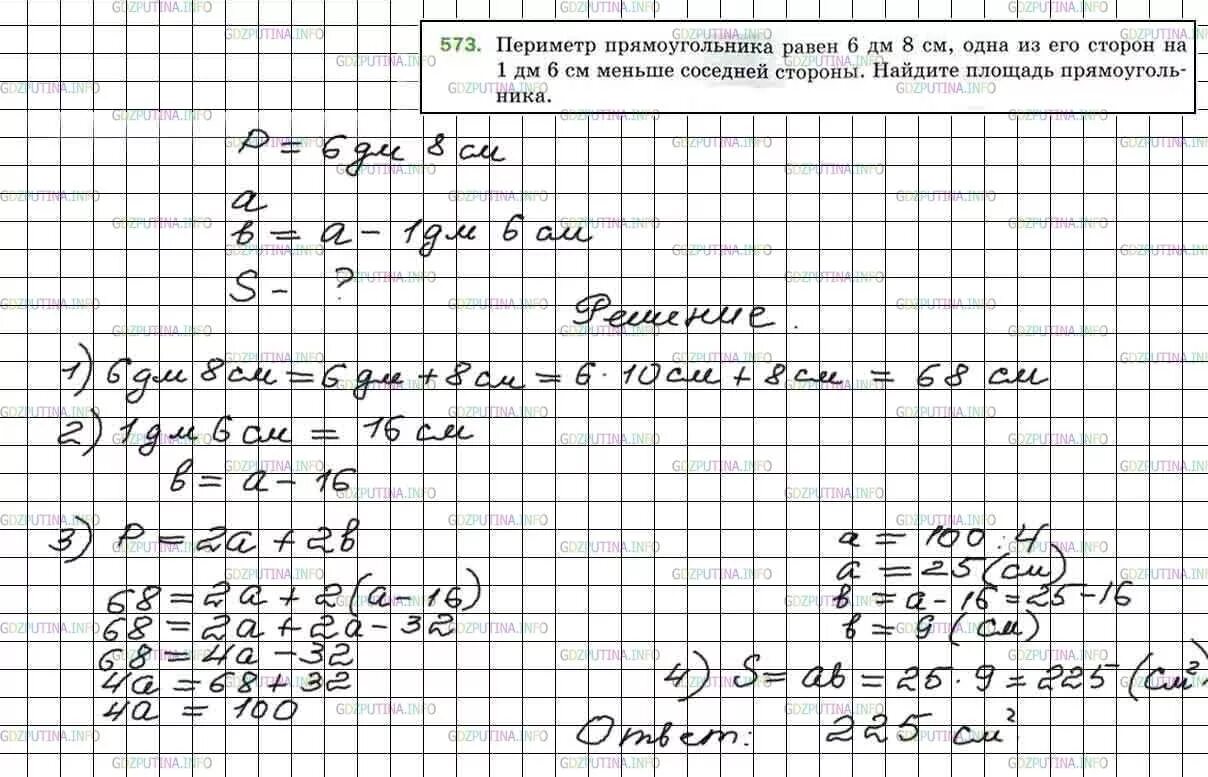 573. Периметр прямоугольника равен 6 дм 8 см, одна из его сторон на
1 дм 6 см меньше соседней стороны. Найдите площадь прямоуголь-
ника.
P = 6 дм 8 см
a
в = a - 1 дм 6 см
S - ?
Решение.
1) 6 дм 8 см = 6 дм + 8 см = 6 · 10 см + 8 см = 68 см
2) 1 дм 6 см = 16 см
в = a - 16
3) P = 2a + 2в
68 = 2a + 2(a - 16)
68 = 2a + 2a - 32
68 = 4a - 32
4a = 68 + 32
4a = 100
a = 100 : 4
a = 25 (см)
в = a - 16 = 25 - 16
в = 9 (см)
4) S = aв = 25 · 9 = 225 (см²)
Ответ: 225 см²
GDZPUTINA.INFO